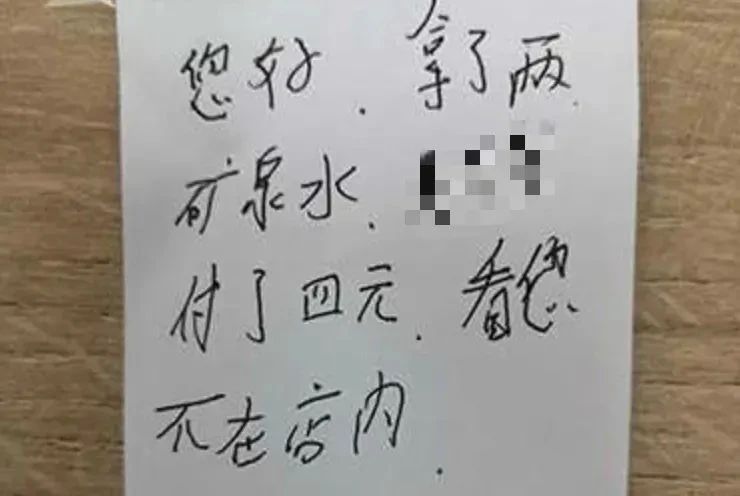 您好，拿了两
矿泉水，
付了四元，看您
不在店内．